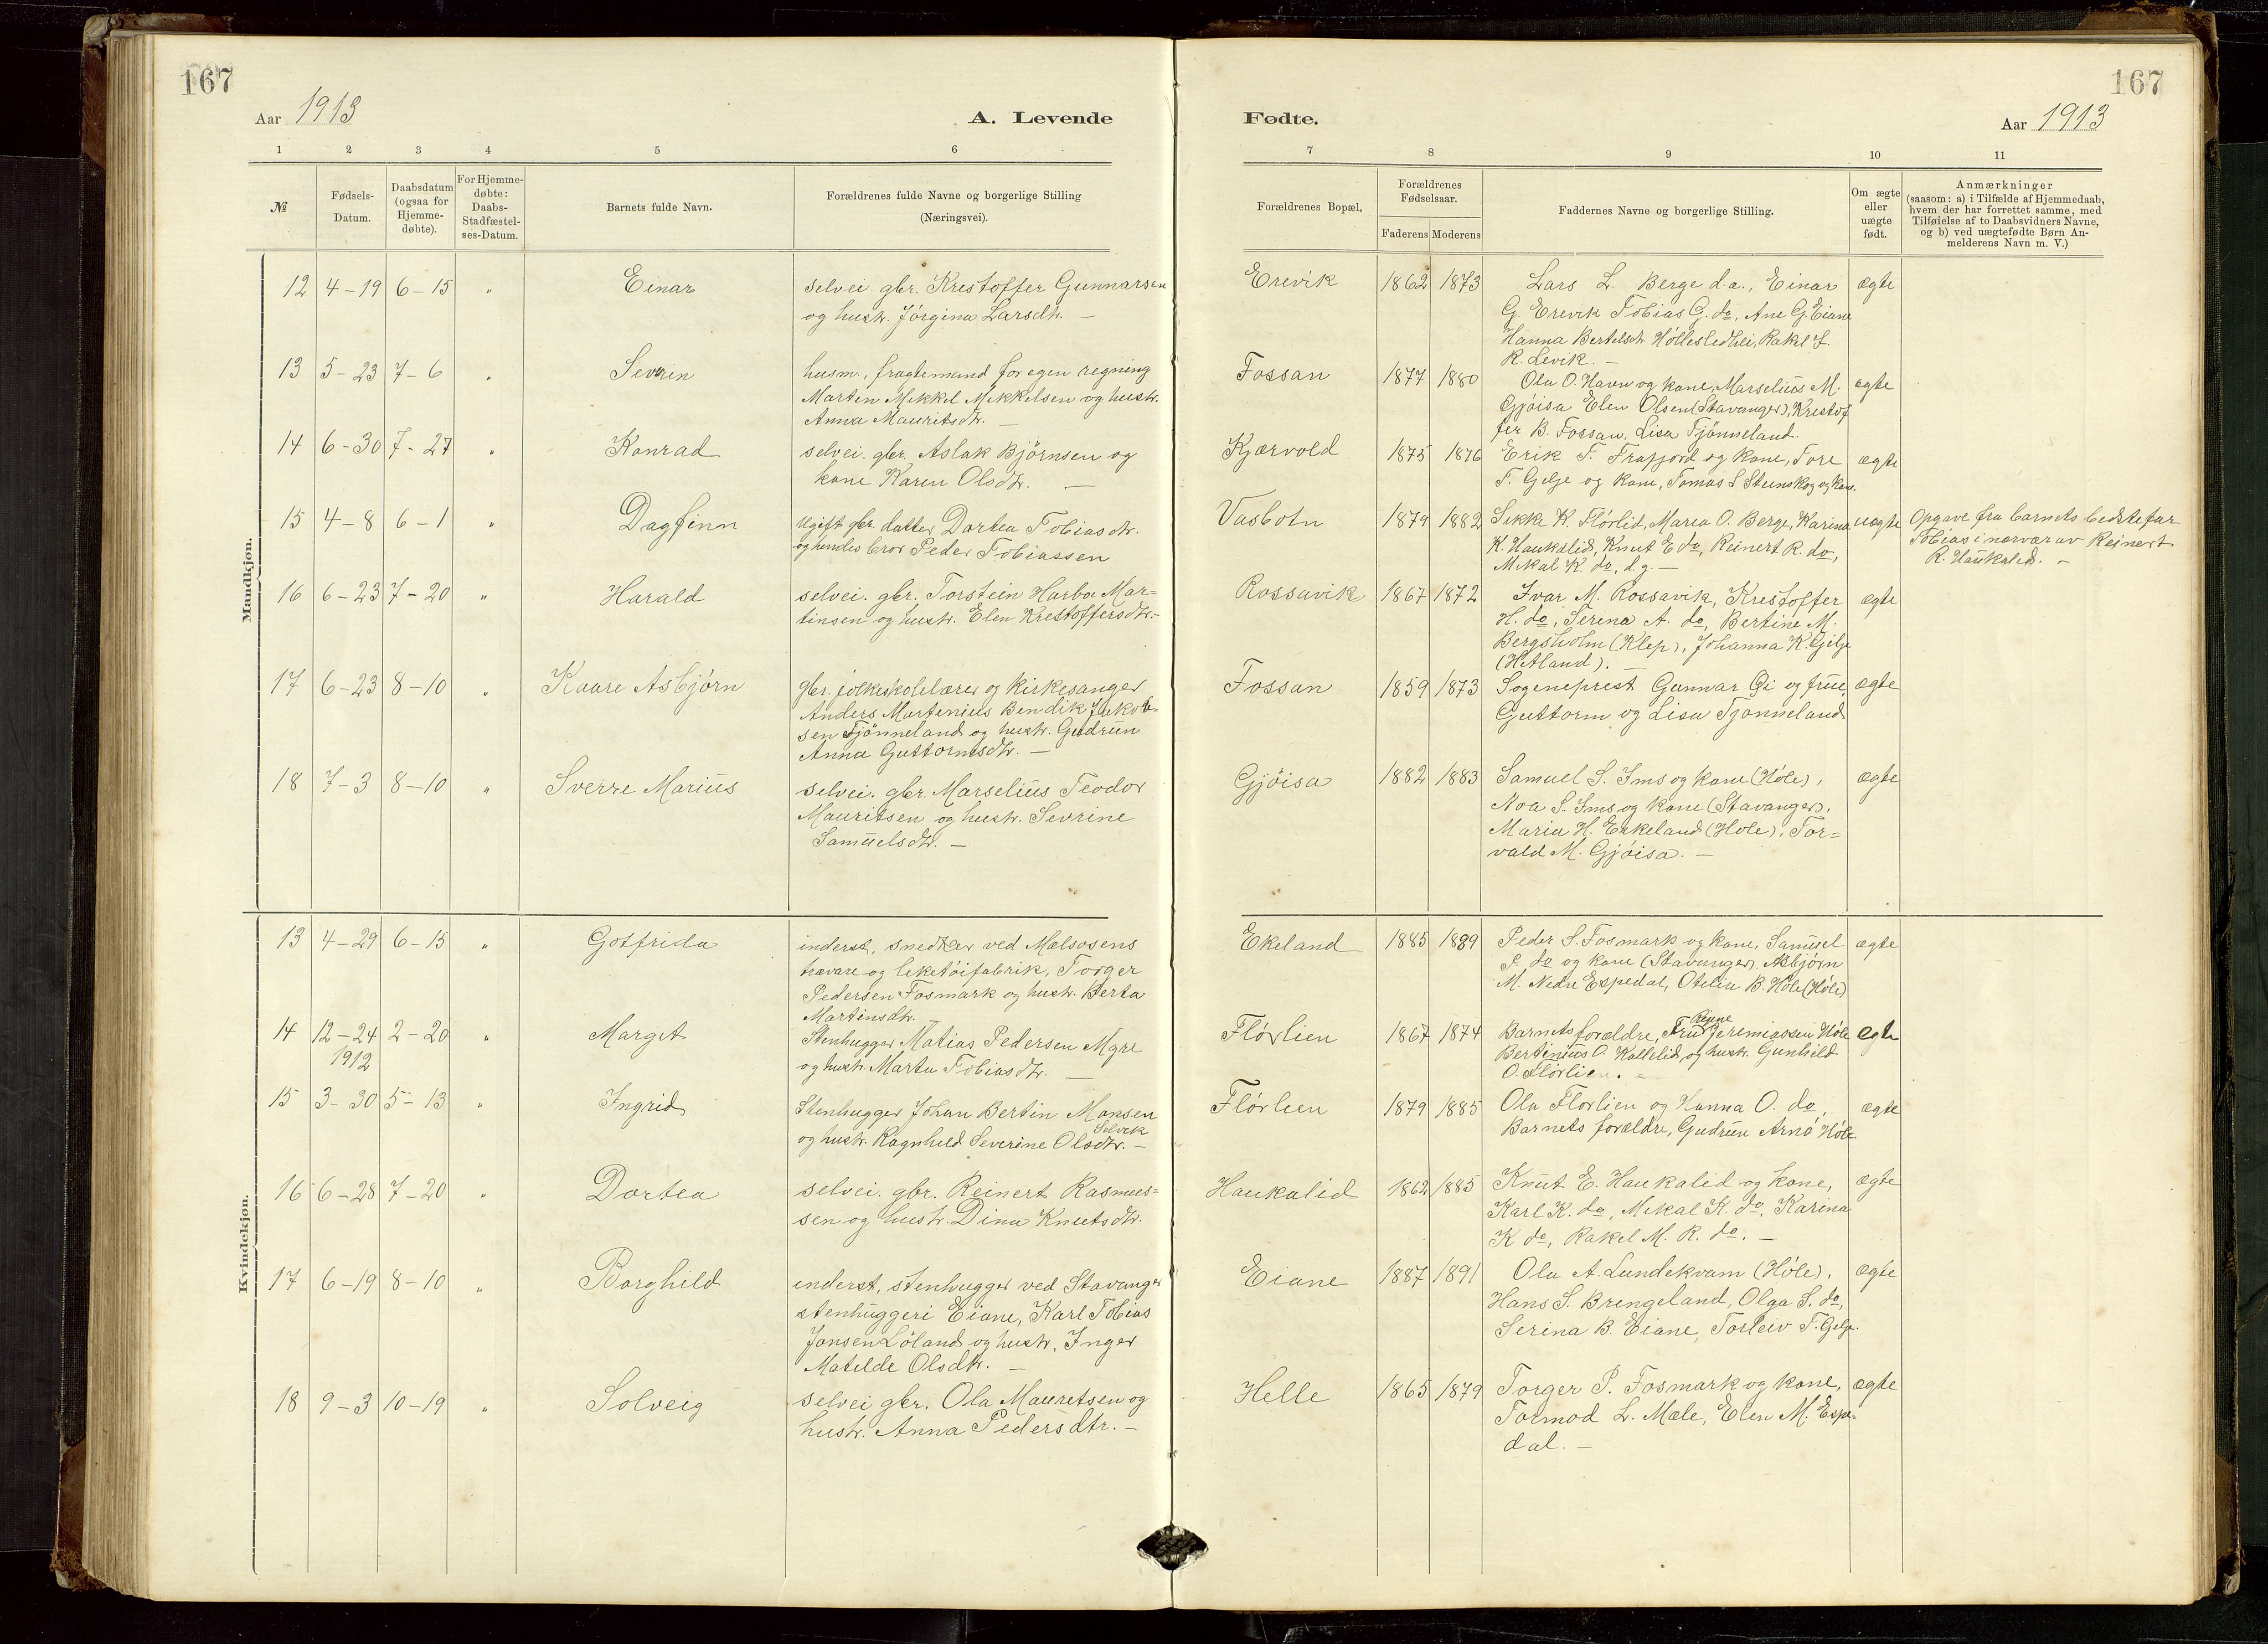 167
167
Aar 1913
A. Levende
Fødte.
Aar 1913
1 2 3 4 5 6 7 8 9 10 11
№
Fødsels-Datum.
Daabsdatum (ogsaa for Hjemme-døbte).
For Hjemme-døbte: Daabs-Stadfæstel-ses-Datum.
Barnets fulde Navn.
Forældrenes fulde Navne og borgerlige Stilling
(Næringsvei).
Forældrenes Bopæl.
Forældrenes Fødselsaar.
Faderens Moderens
Faddernes Navne og borgerlige Stilling.
Om ægte eller uægte født.
Anmærkninger
(saasom: a) i Tilfælde af Hjemmedaab,
hvem der har forrettet samme, med
Tilføielse af to Daabsvidners Navne,
og b) ved uægtefødte Børn An-
melderens Navn m. V.)
Mandkjøn.
12 4-19 6-15 " Einar
selvei. gbr. Krestoffer Gunnarsen
og hustr. Jórgina Larsdtr. —
Erevik 1862 1873
Lars L. Berge d.a., Einar
G. Erevik Tobias G. do, Ane G. Eiane
Hanna Bertelsdtr Höllesledhei, Rakel J.
R. Levik. —
ægte
13 5-23 7-6 " Severin
husm., fragtemand for egen regning
Marten Mikkel Mikkelsen og hustr.
Anna Mauritsdtr. —
Fossan 1877 1880
Ola O. Havn og kone, Marselius M.
Gjöisa Elen Olsen (Stavanger), Krestof
fer B. Fossan, Lisa Tjönneland.
ægte
14 6-30 7-27 " Konrad
selvei. gbr. Aslak Björnsen og
kone Karen Olsdtr. —
Kjærvold 1875 1876
Erik T. Frafjord og kone, Tore
T. Gilje og kone, Tomas S Stenskog og kone.
ægte
15 4-8 6-1 " Dagfinn
Ugift gbr. datter Dortea Tobiasdtr.
og hendes bror Peder Tobiassen
Vasbotn 1879 1882
Sikke K. Flörlid, Marea O. Berge, Karina
K. Haukalid, Knut E do, Reinert R. do,
Mikal K. do, d.g. —
uægte
Opgave fra barnets bedstefar
Tobias i nærvær av Reinert
R. Haukalid. —
16 6-23 7-20 " Harald
selvei. gbr. Torstein Harbo Mar=
tinsen og hustr. Elen Krestoffersdtr. —
Rossavik 1867 1872
Ivar M. Rossavik, Krestoffer
H. do, Serina A. do, Bertine M.
Bergsholm (Klep), Johanna K. Gilje
(Hetland). —
ægte
17 6-23 8-10 " Kaare Asbjörn
gbr. folkeskolelærer og kirkesanger
Anders Martenius Bendik Jakob=
sen Tjönneland og hustr. Gudrun
Anna Guttormsdtr. —
Fossan 1859 1873
Sogneprest Gunnar Gi og frue,
Guttorm og Lisa Tjönneland
ægte
18 7-3 8-10 " Sverre Marius
selvei. gbr. Marselius Teodor
Mauritsen og hustr. Sevrine
Samuelsdtr. —
Gjöisa 1882 1883
Samuel S. Ims og kone (Höle),
Noa S. Ims og kone (Stavanger),
Maria H. Eskeland (Höle), Tor=
vald M. Gjöisa. —
ægte
Kvindekjøn.
13 4-29 6-15 " Gotfrida
inderst, snedker ved Mælsosens
trævare og leketöifabrik, Torger
Pedersen Fosmark og hustr. Berta
Martinsdtr. —
Ekeland 1885 1889
Peder S. Fosmark og kone, Samuel
P. do og kone (Stavanger). Asbjörn
M. Nedre Espedal, Otelia B. Höle (Höle)
ægte
14 12-24 1912 2-20 " Marget
Stenhugger Matias Pedersen Myre
og hustr. Marta Tobiasdtr. —
Flörlien 1867 1874
Barnets forældre, Fru Jeremiassen Höle
Bertinius O. Kallelid og hustr. Gunhild
O. Flörlien. —
egte
15 3-30 5-13 " Ingrid
Stenhugger Johan Bertin Monsen
Selvik
og hustr. Ragnhild Severine Olsdtr. —
Flörlien 1879 1885
Ola Florlien og Hanna O. do,
Barnets forældre, Gudrun Arnö Höle
ægte
16 6-28 7-20 " Dortea
selvei. gbr. Reinert Rasmus=
sen og hustr. Dina Knutsdtr.
Haukalid 1862 1885
Knut E. Haukalid og kone,
Karl K. do, Mikal K. do, Karina
K do, Rakel M. R. do. —
ægte
17 6-19 8-10 " Borghild
inderst, stenhugger ved Stavanger
stenhuggeri Eiane, Karl Tobias
Jonsen Löland og hustr. Inger
Matilde Olsdtr. —
Eiane 1887 1891
Ola A. Lundekvam (Höle),
Hans S. Brengeland, Olga S. do,
Serina B. Eiane, Torleiv T. Gilje.
ægte
18 9-3 10-19 " Solveig
selvei gbr. Ola Mauretsen og
hustr. Anna Pedersdtr. —
Helle 1865 1879
Torger P. Fosmark og kone,
Tormod L. Mæle, Elen M. Espe=
dal. —
ægte